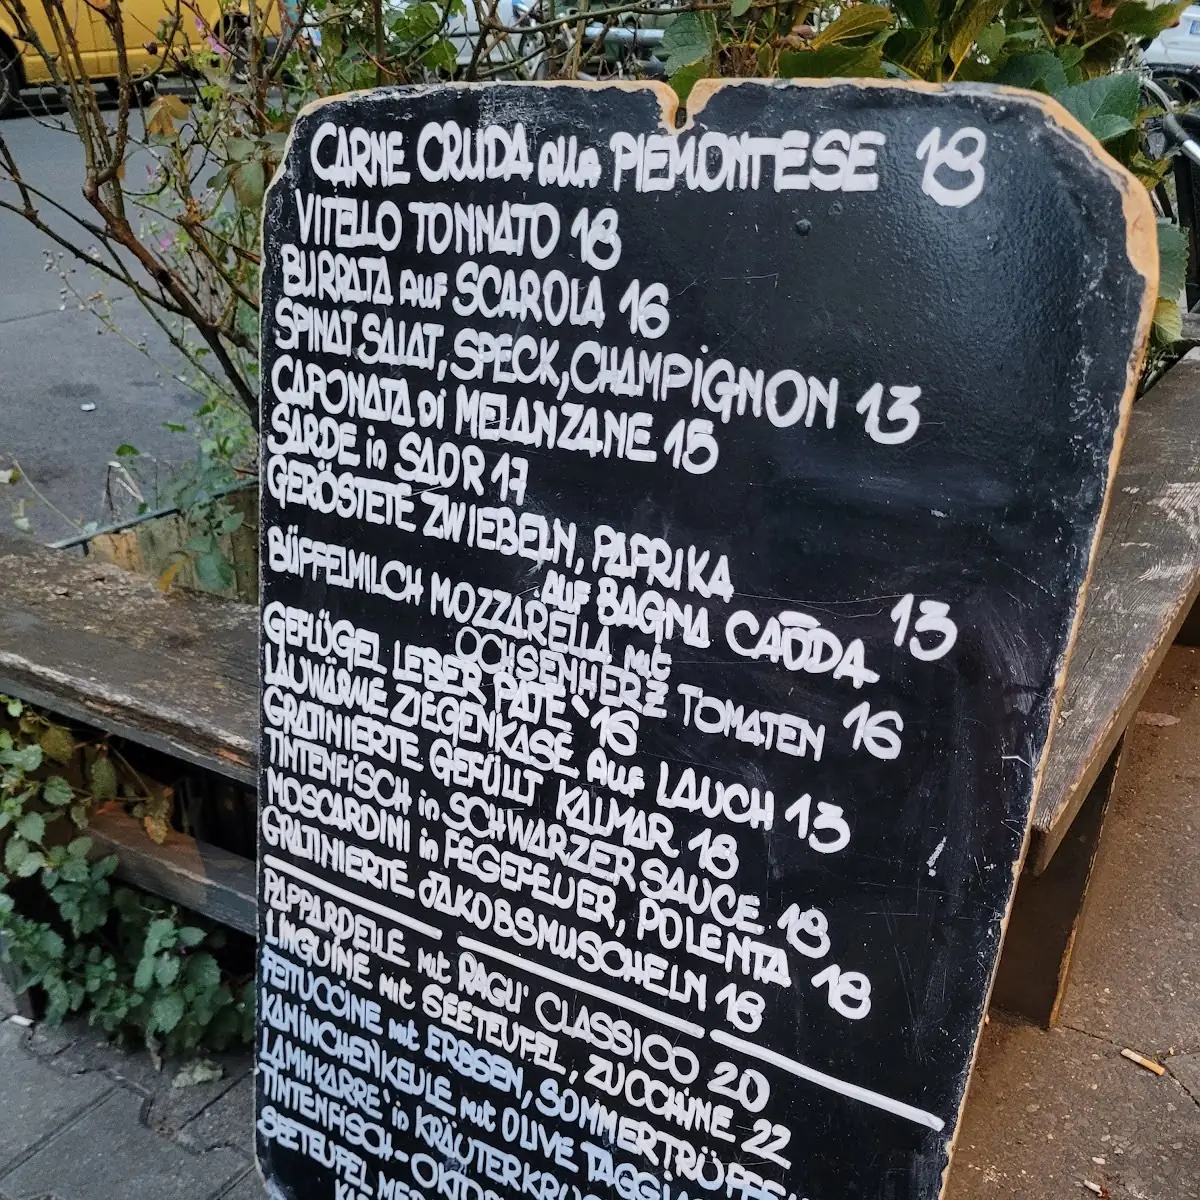 CARNE CRUDA alla PIEMONTESE 18
VITELLO TONNATO 18
BURRATA auf SCAROLA 16
SPINAT SALAT, SPECK, CHAMPIGNON 13
CAPONATA Di MELANZANE 15
SARDE in SAOR 17
GERÖSTETE ZWIEBELN, PAPRIKA
AUF BAGNA CAODA 13
BÜFFELMILCH MOZZARELLA mit
OCHSENHERZ TOMATEN 16
GEFLÜGEL LEBER PATE 16
LAUWÄRME ZIEGENKÄSE AUF LAUCH 13
GRATINIERTE GEFÜLLT KALMAR 18
TINTENFISCH in SCHWARZER SAUCE 18
MOSCARDINI in FEGEFEUER, POLENTA 18
GRATINIERTE JAKOBSMUSCHELN 18
PAPPARDELLE mit RAGU' CLASSICO 20
LINGUINE mit SEETEUFEL, ZUCCHINE 22
FETTUCCINE mit ERBSEN, SOMMERTRÜFFE
KANINCHENKEULE mit OLIVE TAGGIA
LAMMKARRE' in KRÄUTERKRU
TINTENFISCH-OKTOP
SEETEUFEL MED